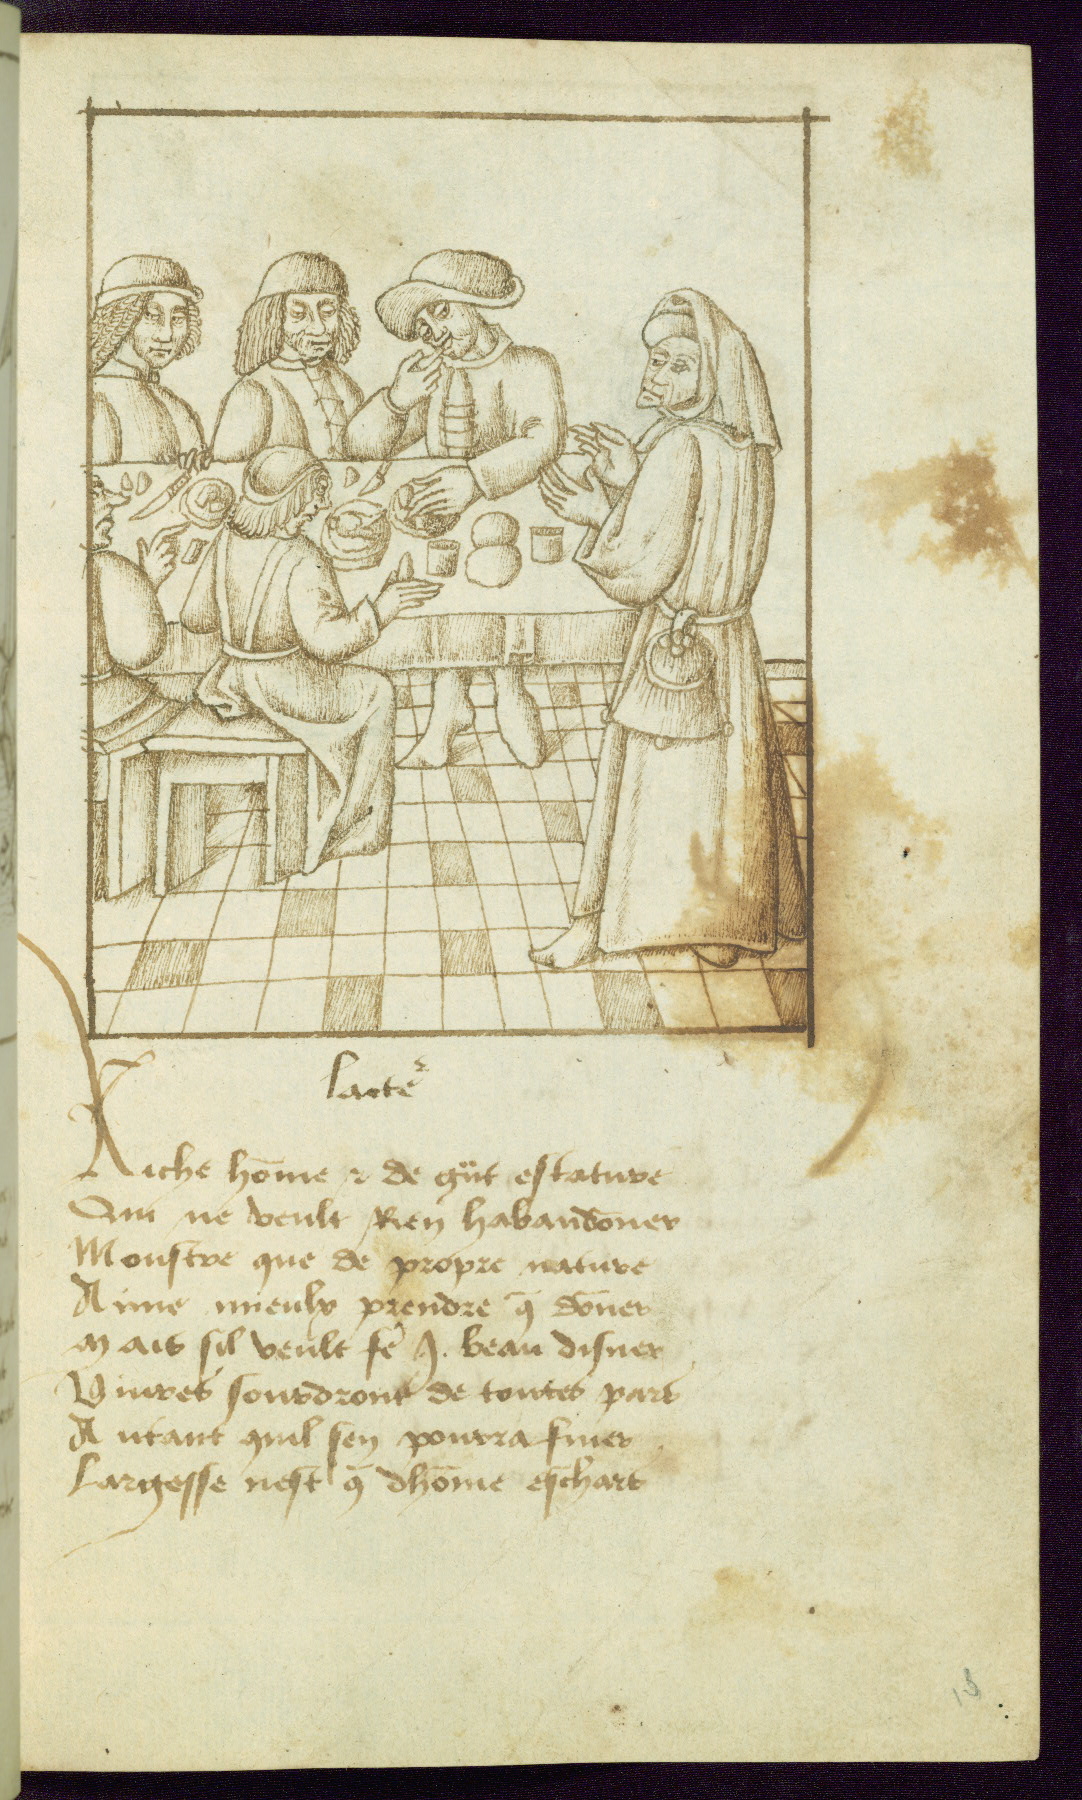 lacteᷣ
Riche hōme ⁊ de gñt estature
Qui ne veult Rien habandōner
Monstre que de propre nature
Aime mieulx prendre q̄ dōner
Mais sil veult fē .I. beau disner
Vivres sourdront de toutes pars
Autant quil sen pourra finer
Largesse nest q̄ dhōme eschars